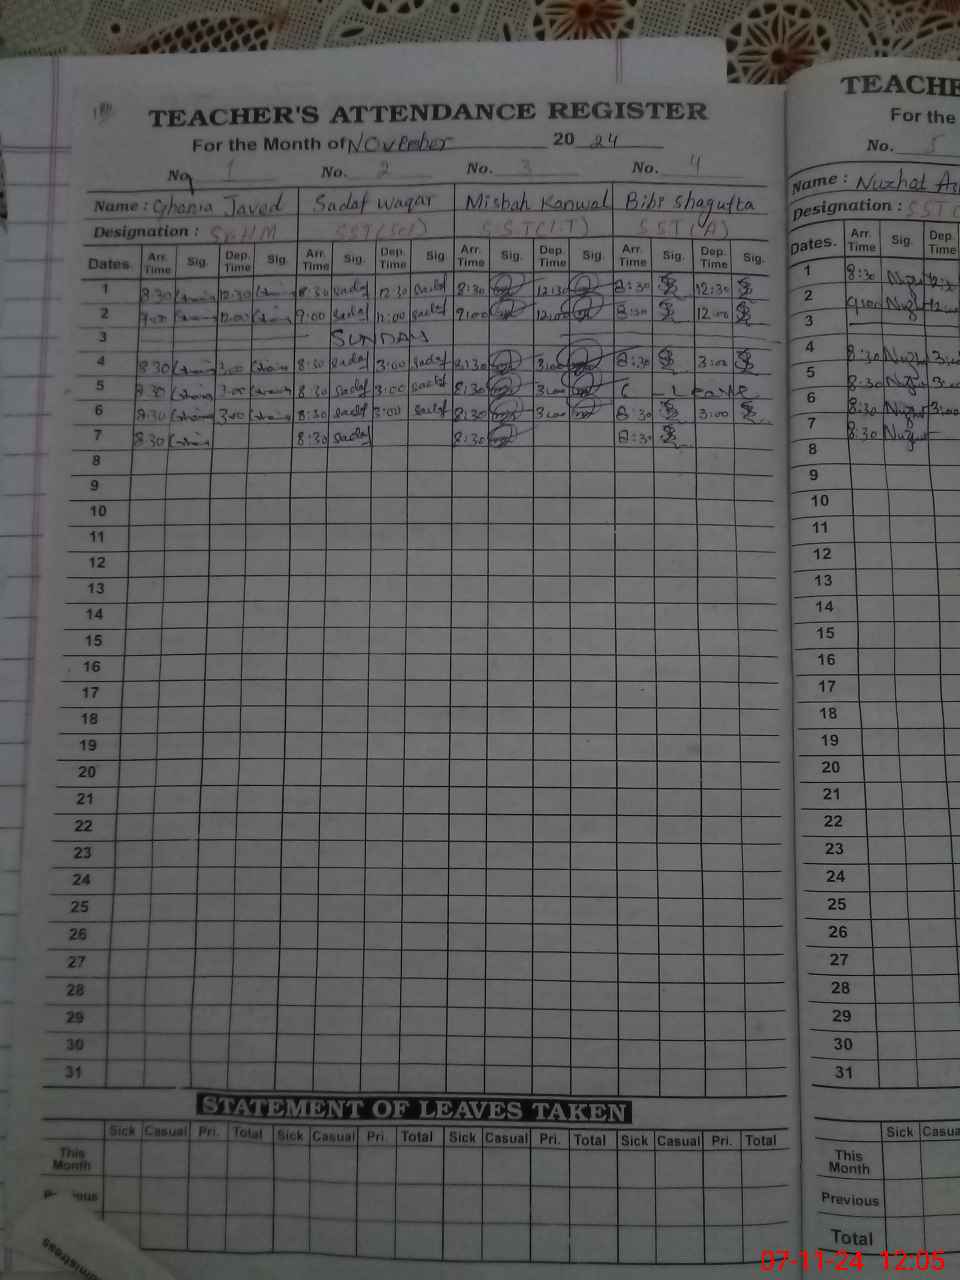 TEACHER'S ATTENDANCE REGISTER
For the Month of November 20 24
No. 1 No. 2 No. 3 No. 4
Name : Ghania Javed Sadaf Waqar Misbah Kanwal Bibi Shagufta
Designation : SST(Sci) S.S.T(I.T) S.S.T (A)
Dates. Arr. Time Sig. Dep. Time Sig. Arr. Time Sig. Dep. Time Sig. Arr. Time Sig. Dep. Time Sig. Arr. Time Sig. Dep. Time Sig.
1 8:30 12:30 8:30 sadaf 12:30 sadaf 8:30 12:30 8:30 12:30
2 9:00 12:00 9:00 sadaf 12:00 sadaf 9:00 12:00 12:00
3 SUNDAY
4 8:30 3:00 8:30 sadaf 3:00 sadaf 8:30 3:00 8:30 3:00
5 8:30 3:00 8:30 sadaf 3:00 sadaf 8:30 3:00 Leave
6 8:30 3:00 8:30 sadaf 3:00 sadaf 8:30 3:00 8:30 3:00
7 8:30 8:30 sadaf 8:30 8:30
8
9
10
11
12
13
14
15
16
17
18
19
20
21
22
23
24
25
26
27
28
29
30
31
STATEMENT OF LEAVES TAKEN
Sick Casual Pri. Total Sick Casual Pri. Total Sick Casual Pri. Total Sick Casual Pri. Total
This Month
TEACHE
For the
No. 5
Name : Nuzhat
Designation : SST
Dates. Arr. Time Sig. Dep. Time
1 8:30
2 9:00
3
4 8:30 3:00
5 8:30 3:00
6 8:30 3:00
7 8:30
8
9
10
11
12
13
14
15
16
17
18
19
20
21
22
23
24
25
26
27
28
29
30
31
Sick Casua
This Month
Previous
Total
07-11-24 12:05